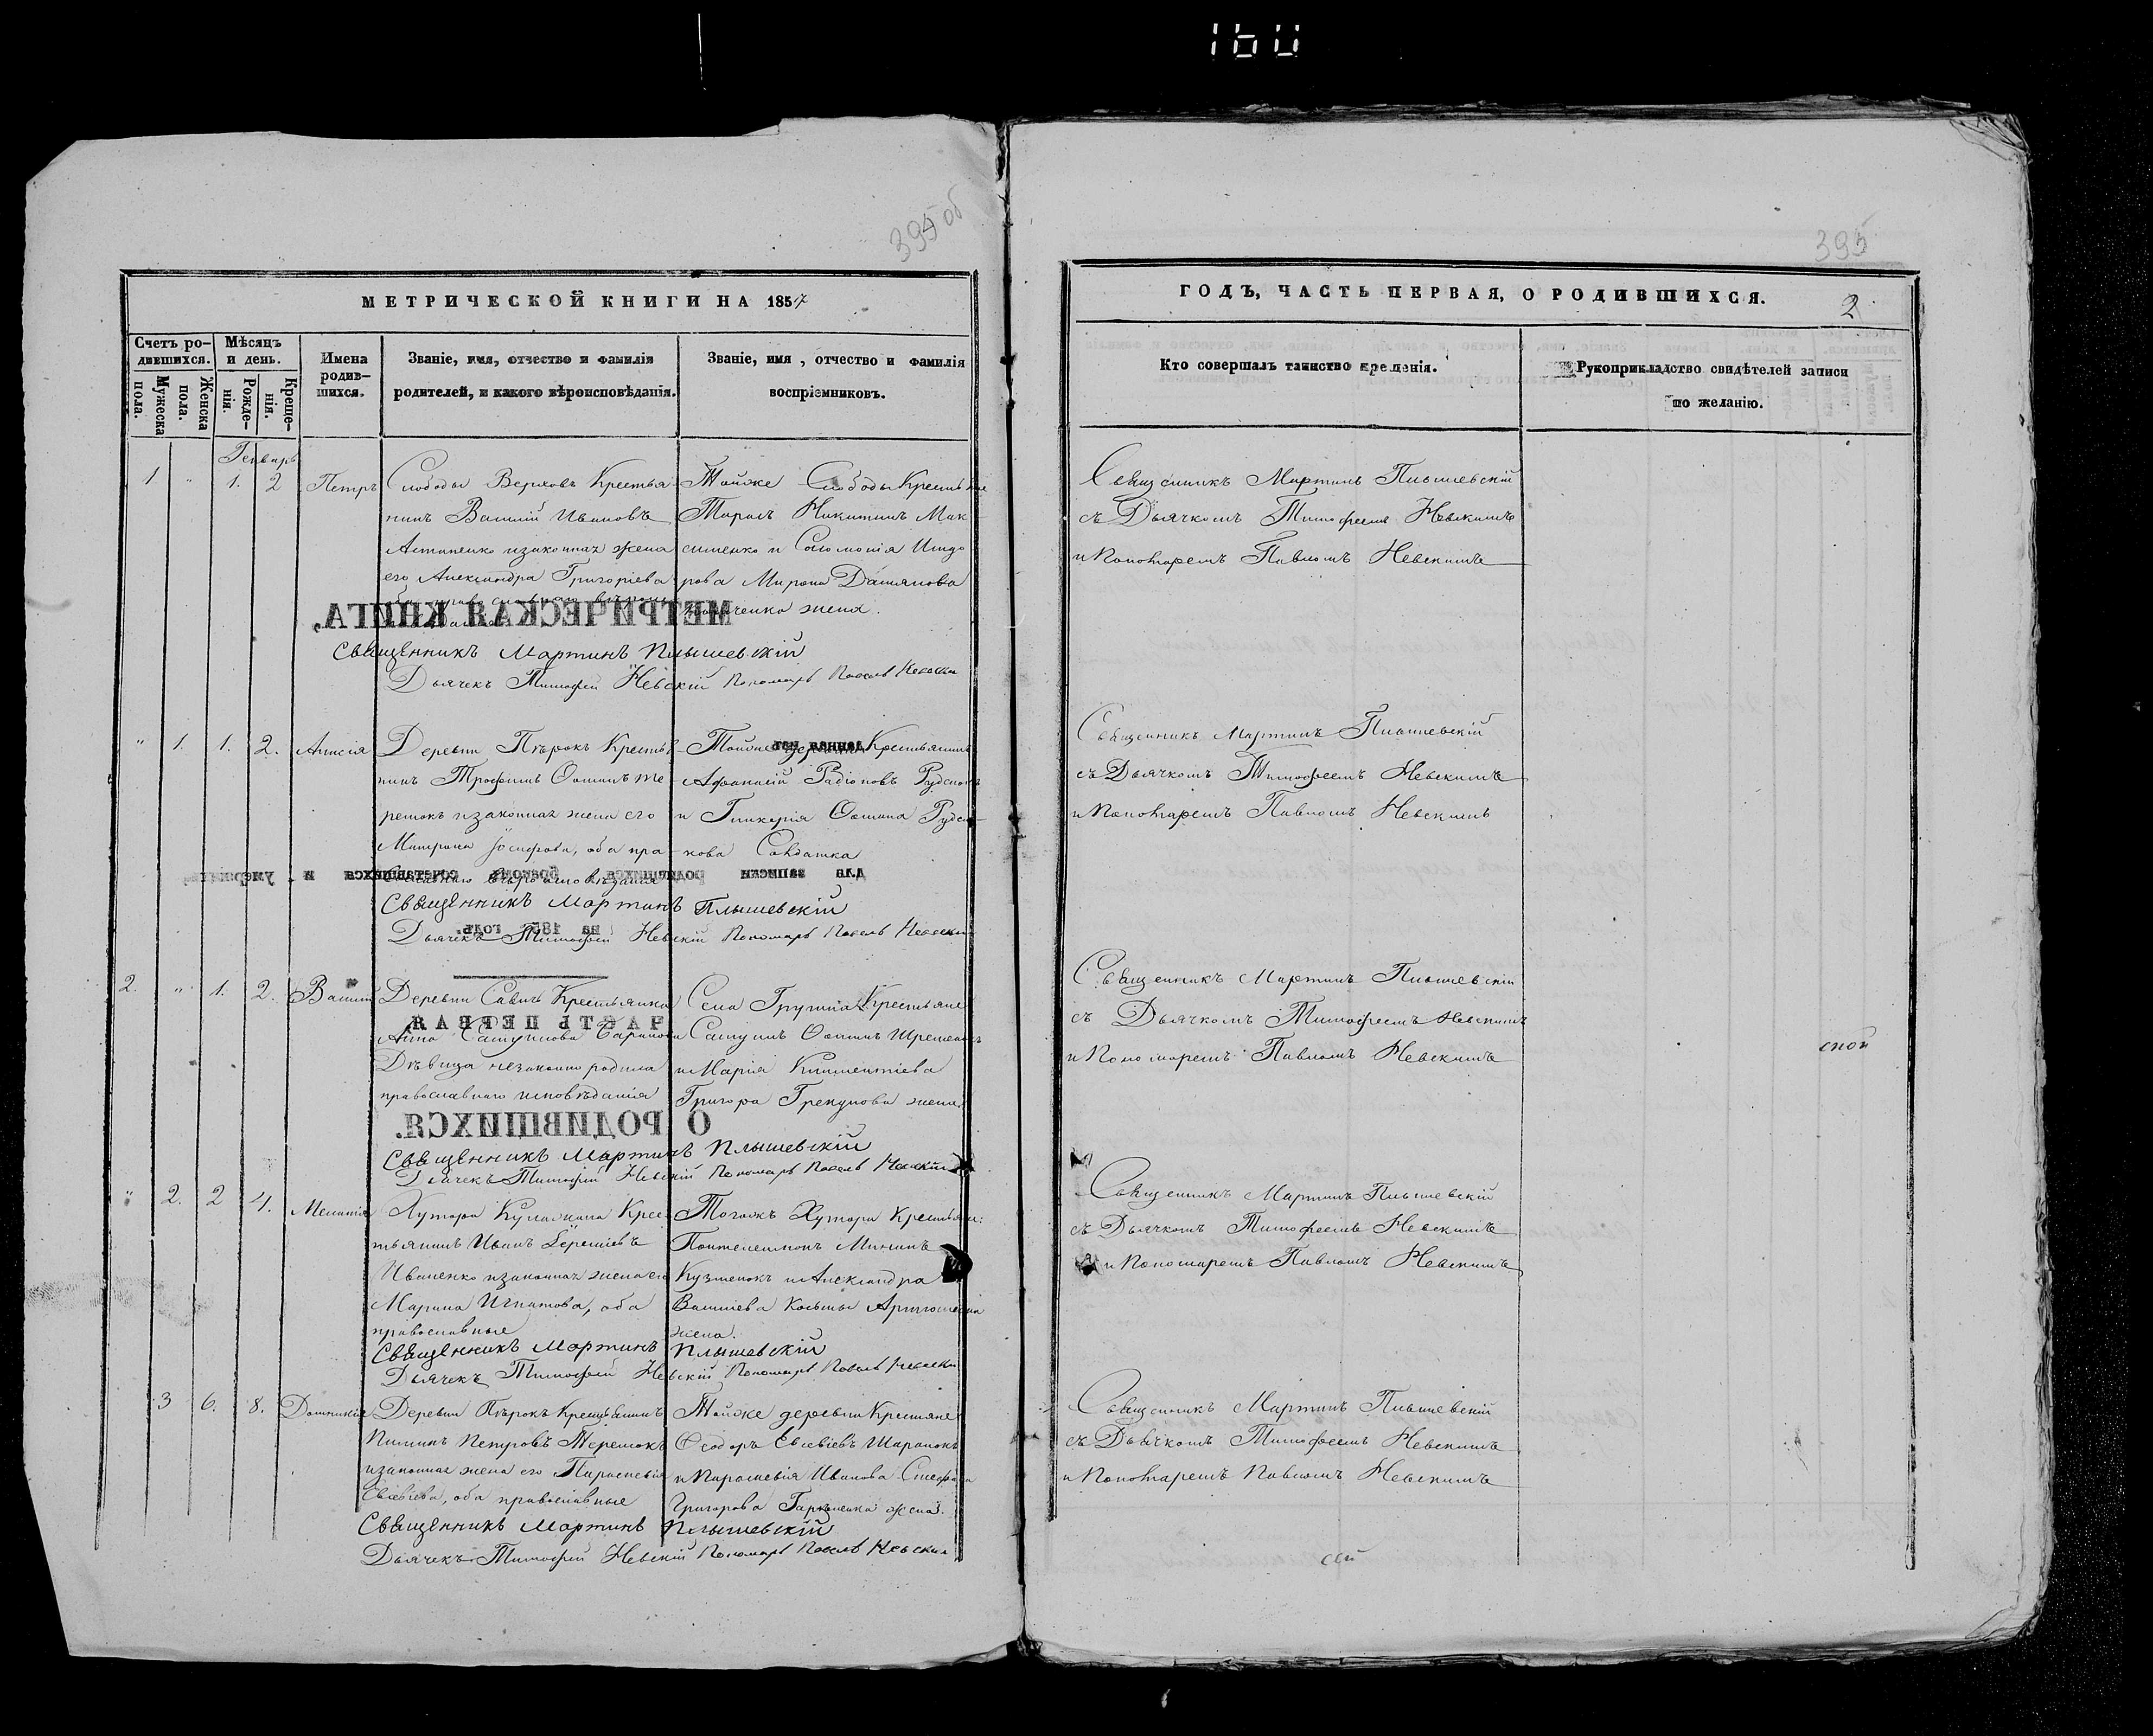 160
395 об
МЕТРИЧЕСКОЙ КНИГИ НА 1857
Счетъ ро-
дившихся.
Мѣсяцъ
и день.
Мужеска
пола.
Женска
пола.
Рожде-
нія.
Креще-
нія.
Имена
родив-
шихся.
Званіе, имя, отчество и фамилія
родителей, и какого вѣроисповѣданія.
Званіе, имя, отчество и фамилія
воспріемниковъ.
Генварь
1 " 1. 2 Петръ
Слободы Верховъ Крестья-
нинъ Василій Ивановъ
Астапенко и законная жена
его Александра Григоріева
оба православнаго вѣроис-
Тойже Слободы Крестьяне
Тарасъ Никитинъ Мак
сименко и Соломонія Исидо
рова Мирона Даміянова
жена.
МЕТРИЧЕСКАЯ КНИГА,
Священникъ Мартинъ Плышевскій
Дьячекъ Тимофей Невскій Пономарь Павелъ Невскій
" 1. 1. 2. Анисія
Деревни Пѣрокъ Крестья-
нинъ Трофимъ Ѳоминъ Те
решокъ и законная жена его
Матрона Іосифова, оба пра-
вославнаго вѣроисповѣданія
Тойже деревни Крестьянинъ
Афанасій Радіоновъ
и Гликерія Ѳомина
кова Солдатка
для записи родившихся, бракомъ сочетавшихся и умершихъ,
Священникъ Мартинъ Плышевскій
на 185 годъ.
Дьячекъ Тимофей Невскій Пономарь Павелъ Невскій
2. " 1. 2. Василій
Деревни Савичъ Крестьянка
Анна Самуилова Баранова
Дѣвица незаконно родила
православнаго исповѣданія
Села Крестьяне
Самуилъ Ѳоминъ
и Марія Климентіева
Григора Грекунова жена
ЧАСТЬ ПЕРВАЯ
О РОДИВШИХСЯ.
Священникъ Мартинъ Плышевскій
Дьячекъ Тимофей Невскій Пономарь Павелъ Невскій
" 2. 2 4. Меланія
Хутора Крес-
тьянинъ Иванъ Ереміевъ
Иваненко и законная жена его
Марина Игнатова, оба
православные
Тогожъ Хутора Крестьян:
Пантелеимонъ Мининъ
Кузменокъ и Александра
Василіева Косьмы
жена.
Священникъ Мартинъ Плышевскій
Дьячекъ Тимофей Невскій Пономарь Павелъ Невскій
3 6. 8. Домникія
Деревни Пѣрокъ Крестьянинъ
Пиминъ Петровъ Терешокъ
и законная жена его Параскевія
Евсевіева, оба православные
Тойже деревни Крестьяне
Ѳеодоръ Евсевіевъ Шаранокъ
и Параскевія Иванова Стефана
Григорова жена.
Священникъ Мартинъ Плышевскій
Дьячекъ Тимофей Невскій Пономарь Павелъ Невскій
395
ГОДЪ, ЧАСТЬ ПЕРВАЯ, О РОДИВШИХСЯ.
2
Кто совершалъ таинство крещенія.
Рукоприкладство свидѣтелей записи
по желанію.
Священникъ Мартинъ Плышевскій
съ Дьячкомъ Тимофеемъ Невскимъ
и Пономаремъ Павломъ Невскимъ
Священникъ Мартинъ Плышевскій
съ Дьячкомъ Тимофеемъ Невскимъ
и Пономаремъ Павломъ Невскимъ
Священникъ Мартинъ Плышевскій
съ Дьячкомъ Тимофеемъ Невскимъ
и Пономаремъ Павломъ Невскимъ
ской
Священникъ Мартинъ Плышевскій
съ Дьячкомъ Тимофеемъ Невскимъ
и Пономаремъ Павломъ Невскимъ
Священникъ Мартинъ Плышевскій
съ Дьячкомъ Тимофеемъ Невскимъ
и Пономаремъ Павломъ Невскимъ
сей